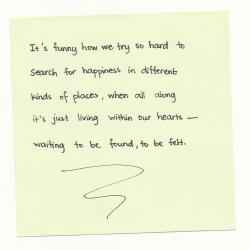 It's funny how we try so hard to
search for happiness in different
kinds of places, when all along
it's just living within our hearts —
waiting to be found, to be felt.